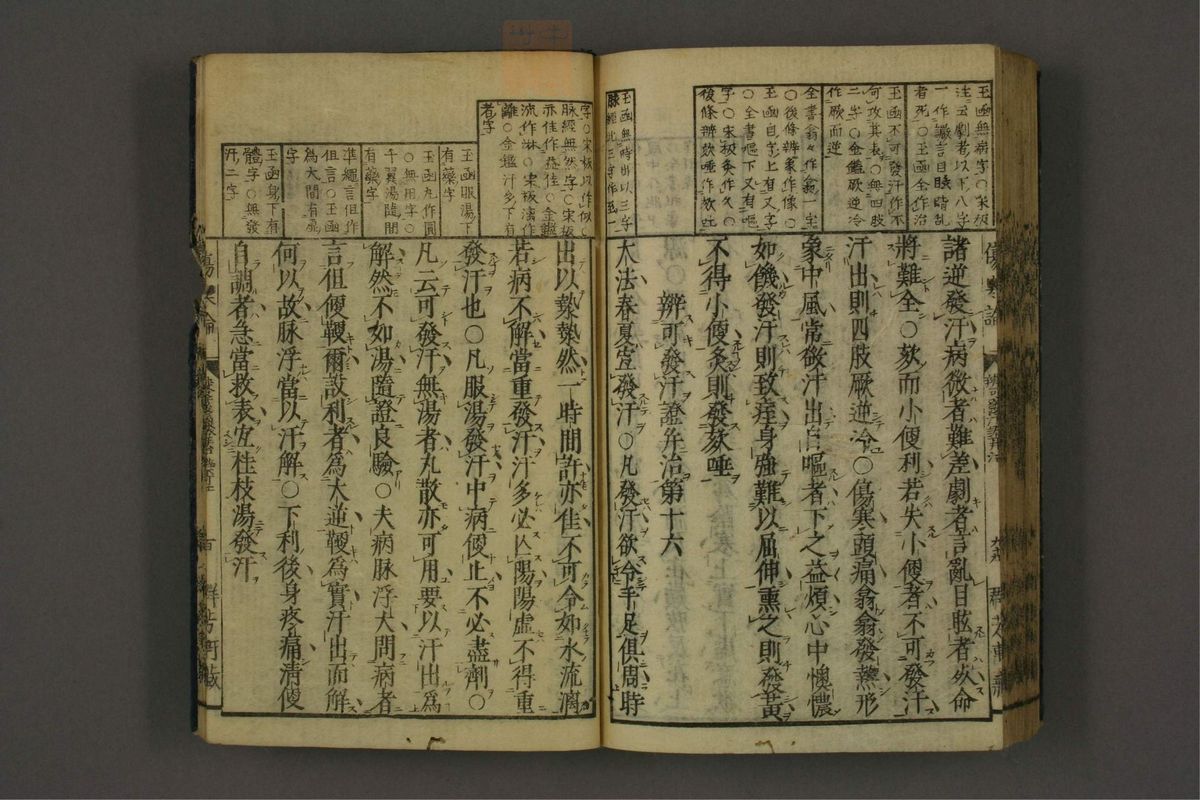 諸逆發汗病微者難差劇者言亂目眩者死命
將難全○欬而小便利若失小便者不可發汗
汗出則四肢厥逆冷○傷寒頭痛翕翕發熱形
象中風常微汗出自嘔者下之益煩心中懊憹
如饑發汗則致痓身強難以屈伸熏之則發黃
不得小便灸則發欬唾
辨可發汗證并治第十六
大法春夏宜發汗○凡發汗欲令手足俱周時
玉函無病字○宋板
注云劇者以下八字
一作讝言目眩時亂
者死○玉函全作治
玉函不可發汗作不
可攻其表○無四肢
二字○金鑑厥逆冷
作厥而逆
全書翕々作翕一字
○後條辨象作像○
玉函自字上有又字
○全書嘔下又有嘔
字○宋板灸作久○
後條辨欬唾作欬吐
玉函無時出以三字
脉經此三字作至一
傷寒論
出以漐漐然一時間許亦佳不可令如水流漓
若病不解當重發汗汗多必亾陽陽虛不得重
發汗也○凡服湯發汗中病便止不必盡劑○
凡云可發汗無湯者丸散亦可用要以汗出爲
解然不如湯隨證良驗○夫病脉浮大問病者
言但便鞕爾設利者爲大逆鞕爲實汗出而解
何以故脉浮當以汗解○下利後身疼痛清便
自調者急當救表宜桂枝湯發汗
字○宋板以作似○
脉經無然字○宋板
亦佳作益佳○金鑑
流作淋○宋板漓作
離○金鑑汗多下有
者字
玉函服湯下
有藥字
玉函丸作圓
○無用字○
千翼湯隨間
有藥字
準繩言但作
但言○玉函
爲大間有虛
字
玉函身下有
體字○無發
汗二字
傷寒論